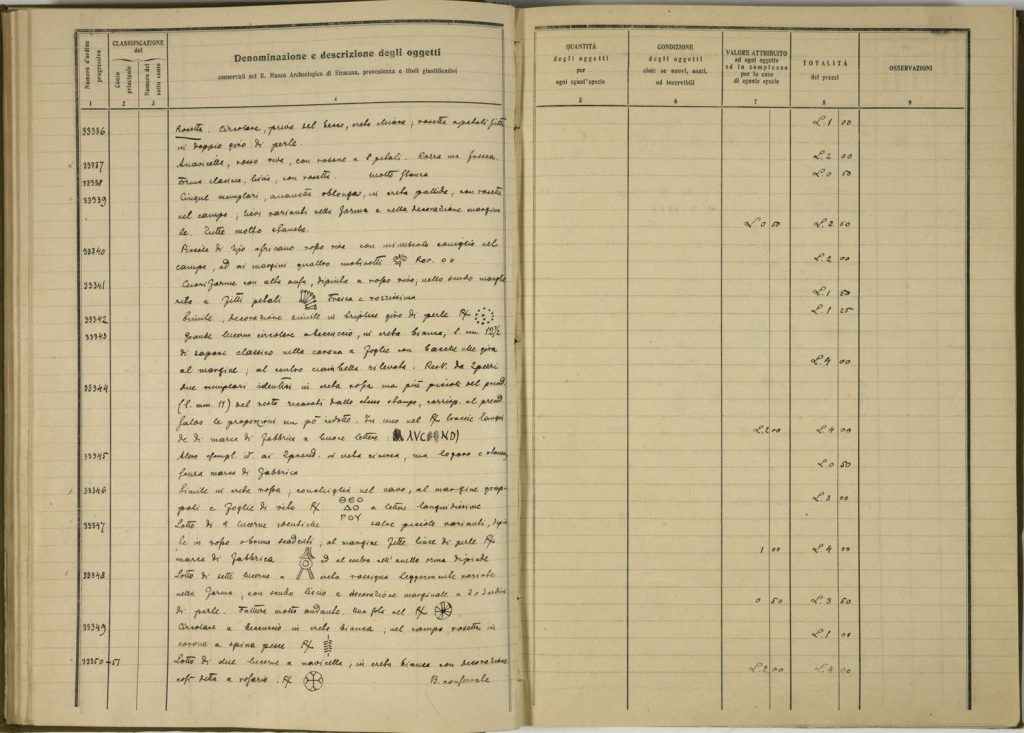 Numero d'ordine progressivo
CLASSIFICAZIONE del
Conto principale
Numero del sotto conto
Denominazione e descrizione degli oggetti
conservati nel R. Museo Archeologico di Siracusa, provenienza e titoli giustificativi
QUANTITÀ degli oggetti per ogni egual'specie
CONDIZIONE degli oggetti cioè: se nuovi, usati, od inservibili
VALORE ATTRIBUITO ad ogni oggetto ed in complesso per le cose di eguale specie
TOTALITÀ dei prezzi
OSSERVAZIONI
1 2 3 4 5 6 7 8 9
33336 Rosetta. Circolare, priva del becco, creta chiara; rosetta a petali fitti L. 1 00
in doppio giro di perle.
33337 Navicella, rosso viva, con rosone a 8 petali. Rozza ma fresca L. 2 00
33338 Forma classica, liscia, con rosetta. molto stanca L. 0 50
33339 Cinque esemplari, oblonga, in creta pallida, con rosetta
nel campo; lievi varianti nella forma e nella decorazione margina
le. Tutte molto stanche. L. 0 50 L. 2 50
33340 Piccola di tipo africano rosso viva con coniglio nel
campo, ed ai margini quattro motivetti Rov. oo L. 2 00
33341 Cuoriforme con alta ansa, dipinta a rosso vivo; nello scudo marghe
rita a fitti petali Fresca e rozzissima L. 1 50
33342 Simile, decorazione simile in triplice giro di perle L. 1 25
33343 Grande lucerna circolare a beccuccio, in creta bianca, l. mm. 12½
di sapore classico nella corona a foglie con bacche che gira
al margine; al centro ciambella rilevata. L. 4 00
33344 due esemplari identici in creta rossa ma più piccoli del preced.
(l. mm. 11) del resto ricavati dallo stesso stampo, corrisp. al preced.
salvo le proporzioni un pò ridotte. In uno nel
di marca di fabbrica a buone lettere: L. 2 00 L. 4 00
33345 Altro esempl. id. ai 2 preced. in creta cinerea, ma logoro e
senza marca di fabbrica L. 0 50
33346 Simile in creta rossa; conchiglia nel cavo, al margine grap
poli e foglie di vite ΘΕΟ ΔΟ ΡΟΥ a lettere languidissime L. 3 00
33347 Lotto di 4 lucerne identiche salvo piccole varianti, dipin
te in rosso; al margine fitte linee di perle
marca di fabbrica Ed al centro nell'anello 1 00 L. 4 00
33348 Lotto di sette lucerne a creta rossigna leggermente variate
nella forma, con scudo liscio e decorazione marginale a 2 o 3 ordini
di perle. Fattura molto andante. Una sola nel 0 50 L. 3 50
33349 Circolare a beccuccio in creta bianca, nel campo rosetta in
corona a spina pesce L. 1 00
33350-51 Lotto di due lucerne a navicella, in creta bianca con decorazione
così detta a rosario. B. conservate L. 2 00 L. 4 00